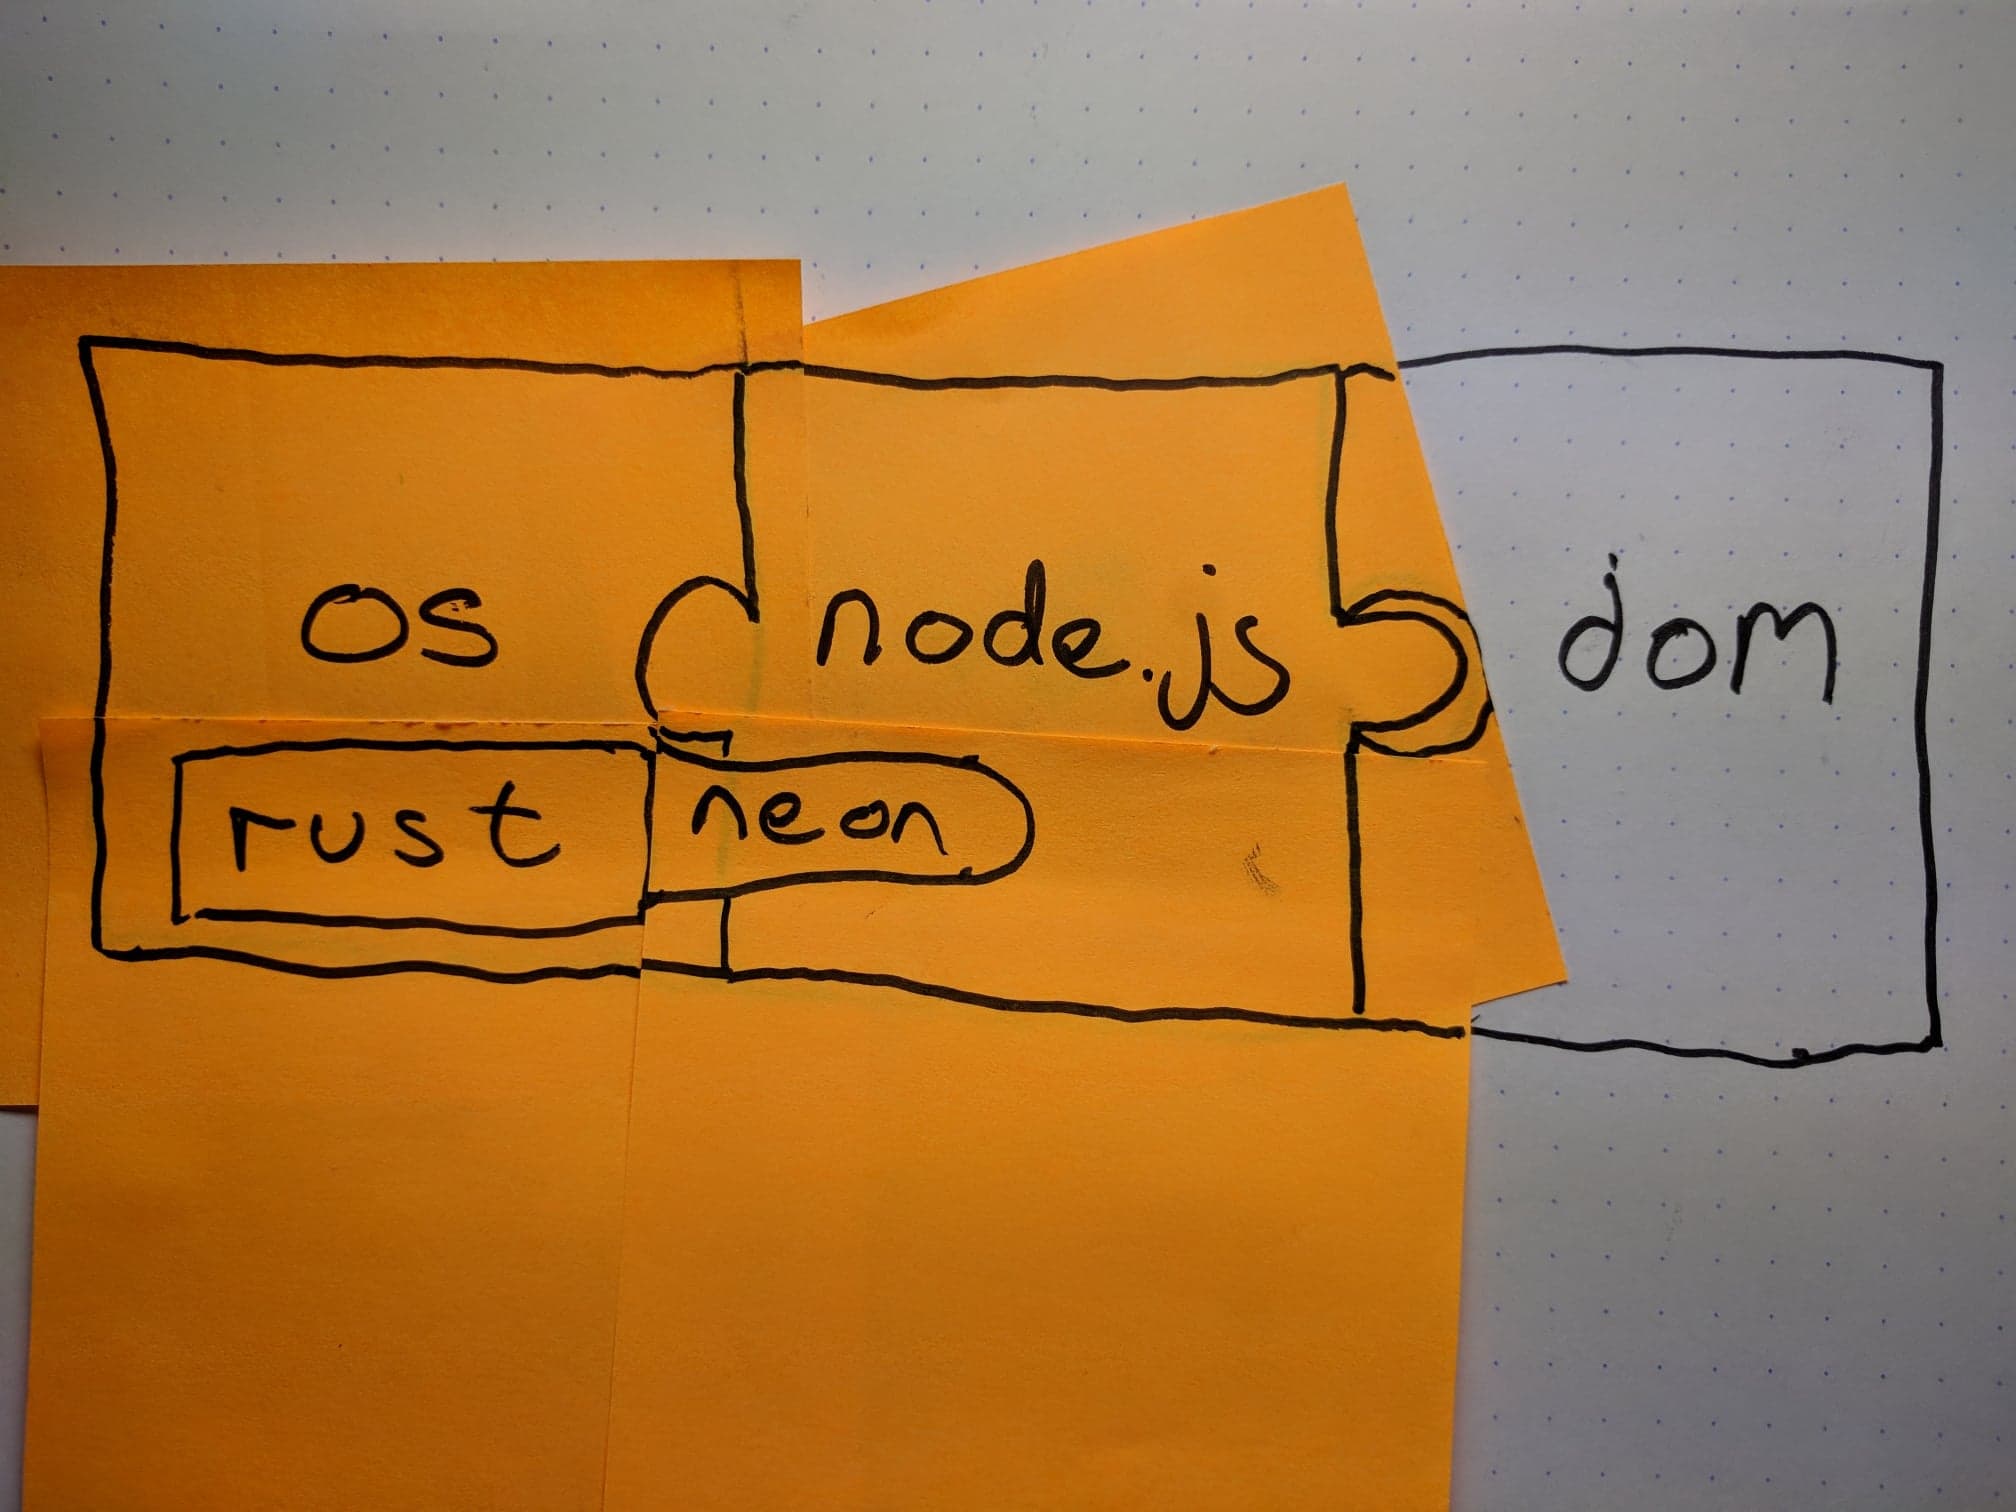 os
node.js
dom
rust
neon